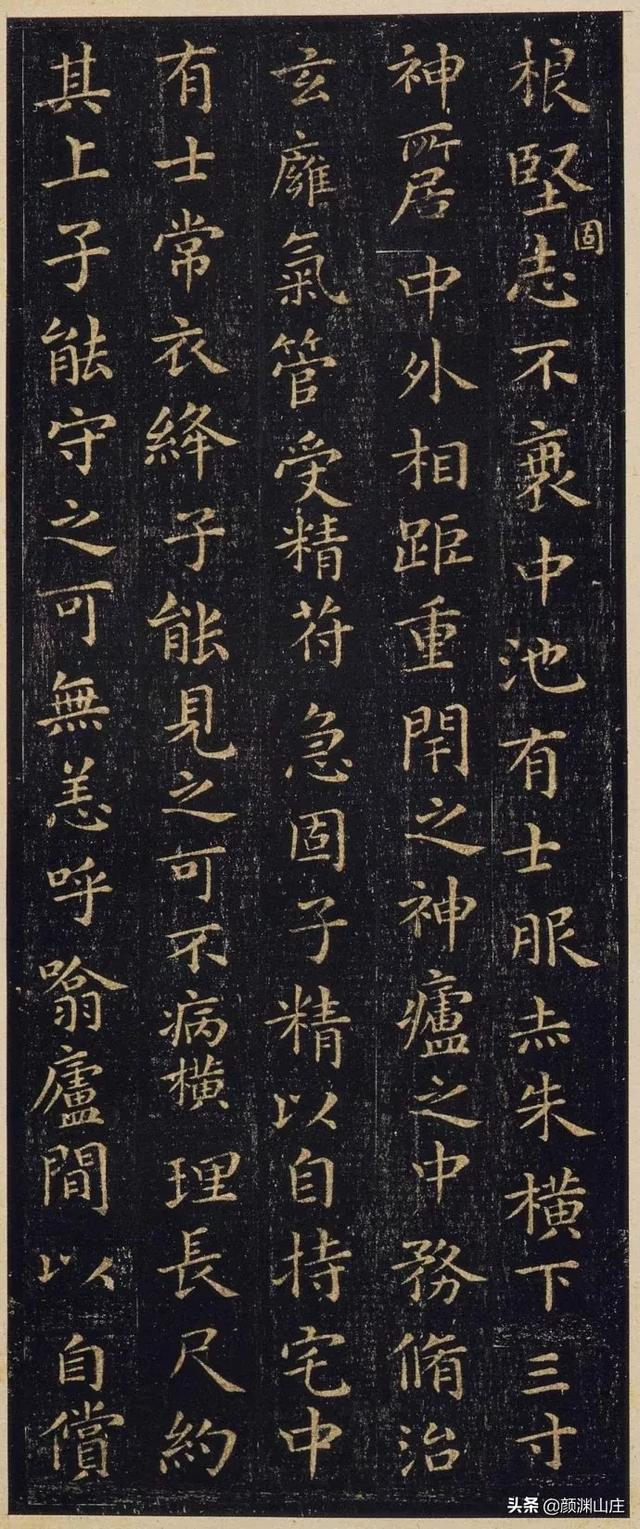 根堅固志不衰中池有士服赤朱橫下三寸
神所居中外相距重閇之神廬之中務脩治
玄廱氣管受精符急固子精以自持宅中
有士常衣絳子能見之可不病橫理長尺約
其上子能守之可無恙呼噏廬間以自償
头条 @颜渊山庄